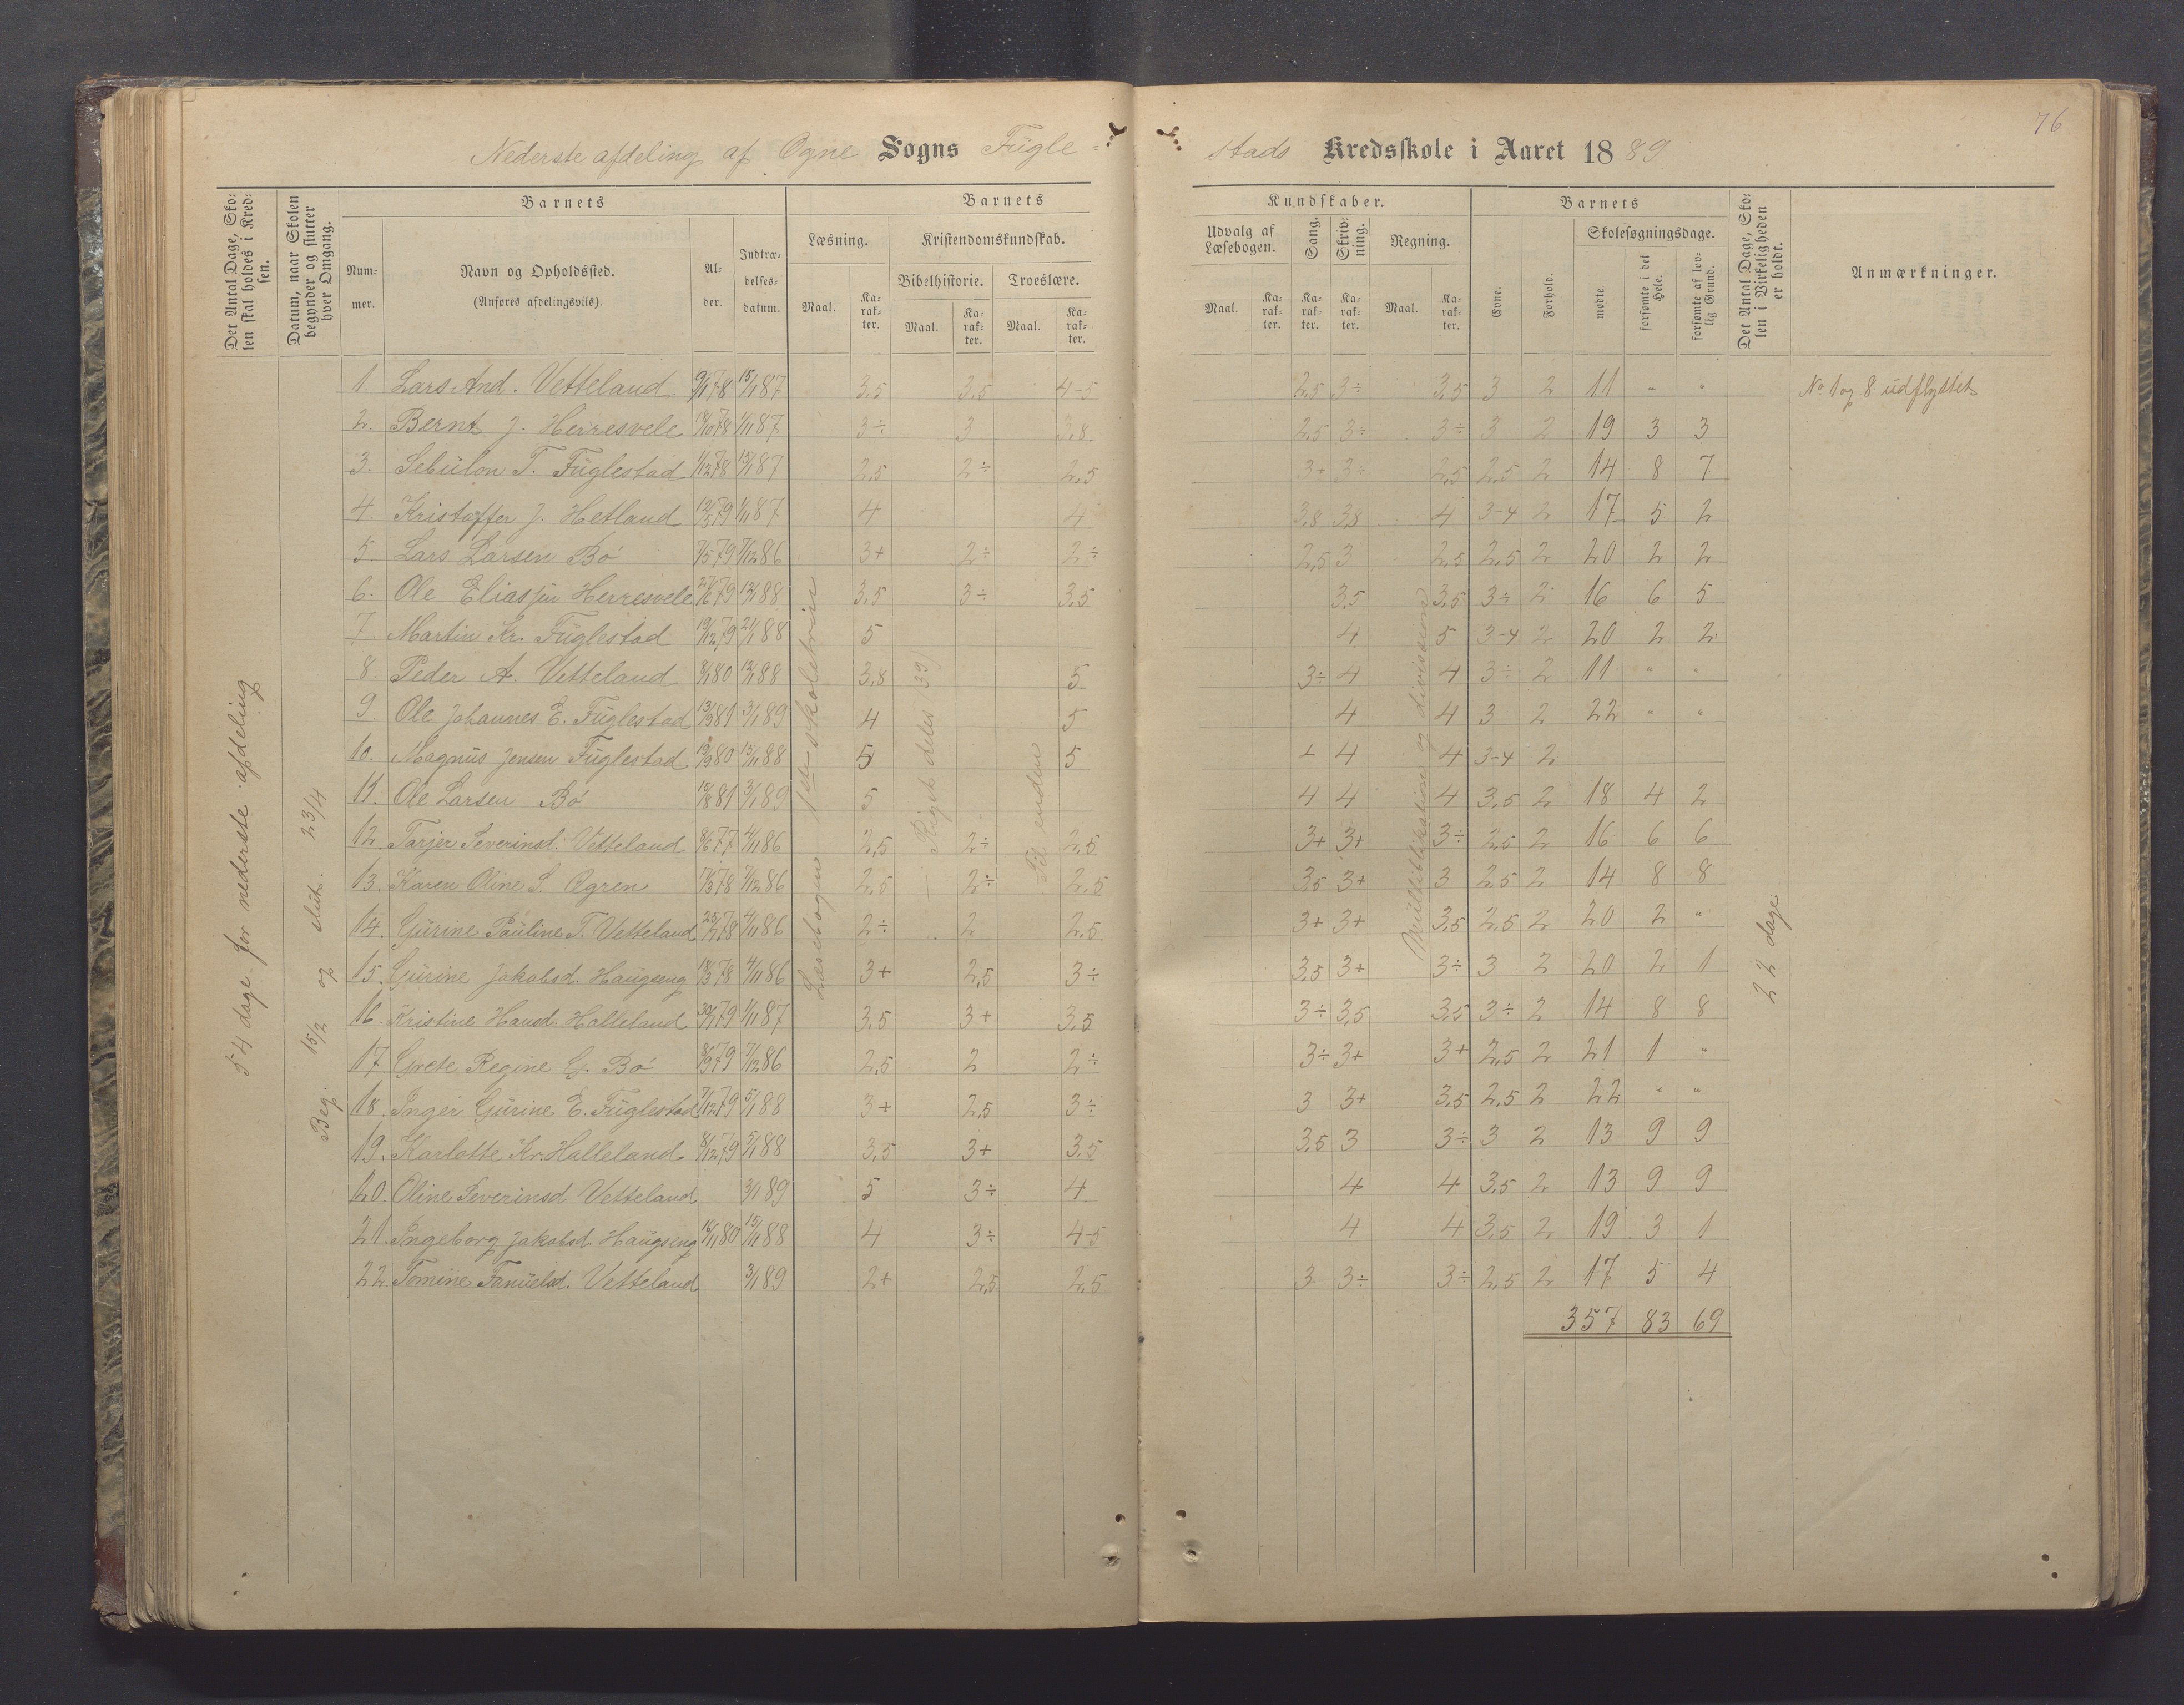 76
Nederste afdeling af Ogne Sogns Fügle-
stads Kredsskole i Aaret 1889
Det Antal Dage, Skolen skal holdes i Kredsen.
Datum, naar Skolen begynder og slutter hver Omgang.
Barnets
Nummer.
Navn og Opholdssted.
(Anføres afdelingsviis).
Alder.
Indtrædelsesdatum.
Barnets
Læsning.
Maal.
Karakter.
Kristendomskundskab.
Bibelhistorie.
Maal.
Karakter.
Troeslære.
Maal.
Karakter.
Kundskaber.
Udvalg af Læsebogen.
Maal.
Karakter.
Sang.
Karakter.
Skrivning.
Karakter.
Regning.
Maal.
Karakter.
Barnets
Evne.
Forhold.
Skolesøgningsdage.
mødte.
forsømte i det Hele.
forsømte af lovlig Grund.
Det Antal Dage, Skolen i Virkeligheden er holdt.
Anmærkninger.
54 dage for nederste afdeling
Beg. 15/2 og slut. 23/4
Læsebogen 1ste skoletrin
Til enden
Multiblikation og division
22 dage
1. Lars And. Vetteland 9/1 78 15/11 87 3,5 3,5 4-5 2,5 3÷ 3,5 3 2 11 " " No 1 og 8 udflyttet
2. Bernt J. Herresvele 18/10 78 1/11 87 3÷ 3 3,8 2,5 3÷ 3÷ 3 2 19 3 3
3. Sebülon T. Füglestad 1/12 78 15/11 87 2,5 2÷ 2,5 3+ 3÷ 2,5 2,5 2 14 8 7
4. Kristoffer J. Hetland 12/5 79 1/11 87 4 4 3,8 3,8 4 3-4 2 17 5 2
5. Lars Larsen Bø 7/5 79 7/12 86 3+ 2÷ 2÷ 2,5 3 2,5 2,5 2 20 2 2
6. Ole Eliasjün Herresvele 27/6 79 12/1 88 3,5 3÷ 3,5 3,5 3,5 3÷ 2 16 6 5
7. Martin Kr. Füglestad 19/12 79 21/1 88 5 4 5 3-4 2 20 2 2
8. Peder A. Vetteland 8/1 80 12/1 88 3,8 5 3÷ 4 4 3÷ 2 11 " "
9. Ole Johannes E. Füglestad 13/3 81 3/1 89 4 5 4 4 3 2 22 " "
10. Magnüs Jensen Füglestad 19/9 80 15/11 88 5 5 4 4 4 3-4 2
11. Ole Larsen Bø 15/8 81 3/1 89 5 4 4 4 3,5 2 18 4 2
12. Tarjer Severinsd. Vetteland 8/6 77 4/11 86 2,5 2÷ 2,5 3+ 3+ 3÷ 2,5 2 16 6 6
13. Karen Oline S. Ogren 17/3 78 7/12 86 2,5 2÷ 2,5 3,5 3+ 3 2,5 2 14 8 8
14. Gürine Paüline T. Vetteland 25/7 78 4/11 86 2÷ 2 2,5 3+ 3+ 3,5 2,5 2 20 2 "
15. Gürine Jakobsd. Haügseng 18/3 78 4/11 86 3+ 2,5 3÷ 3,5 3+ 3÷ 3 2 20 2 1
16. Kristine Hansd. Halleland 30/7 79 1/11 87 3,5 3+ 3,5 3÷ 3,5 3,5 3÷ 2 14 8 8
17. Grete Regine G. Bø 8/9 79 7/12 86 2,5 2 2÷ 3÷ 3+ 3+ 2,5 2 21 1 "
18. Inger Gürine E. Füglestad 7/12 79 5/1 88 3+ 2,5 3÷ 3 3+ 3,5 2,5 2 22 " "
19. Karlotte Kr. Halleland. 8/12 79 5/1 88 3,5 3+ 3,5 3,5 3 3÷ 3 2 13 9 9
20. Oline Severinsd Vetteland 3/1 89 5 3÷ 4 4 4 3,5 2 13 9 9
21. Ingeborg Jakobsd. Haügseng 16/1 80 15/11 88 4 3÷ 4-5 4 4 3,5 2 19 3 1
22. Tomine Tanüelsd. Vetteland 3/1 89 2+ 2,5 2,5 3 3÷ 3÷ 2,5 2 17 5 4
357 83 69